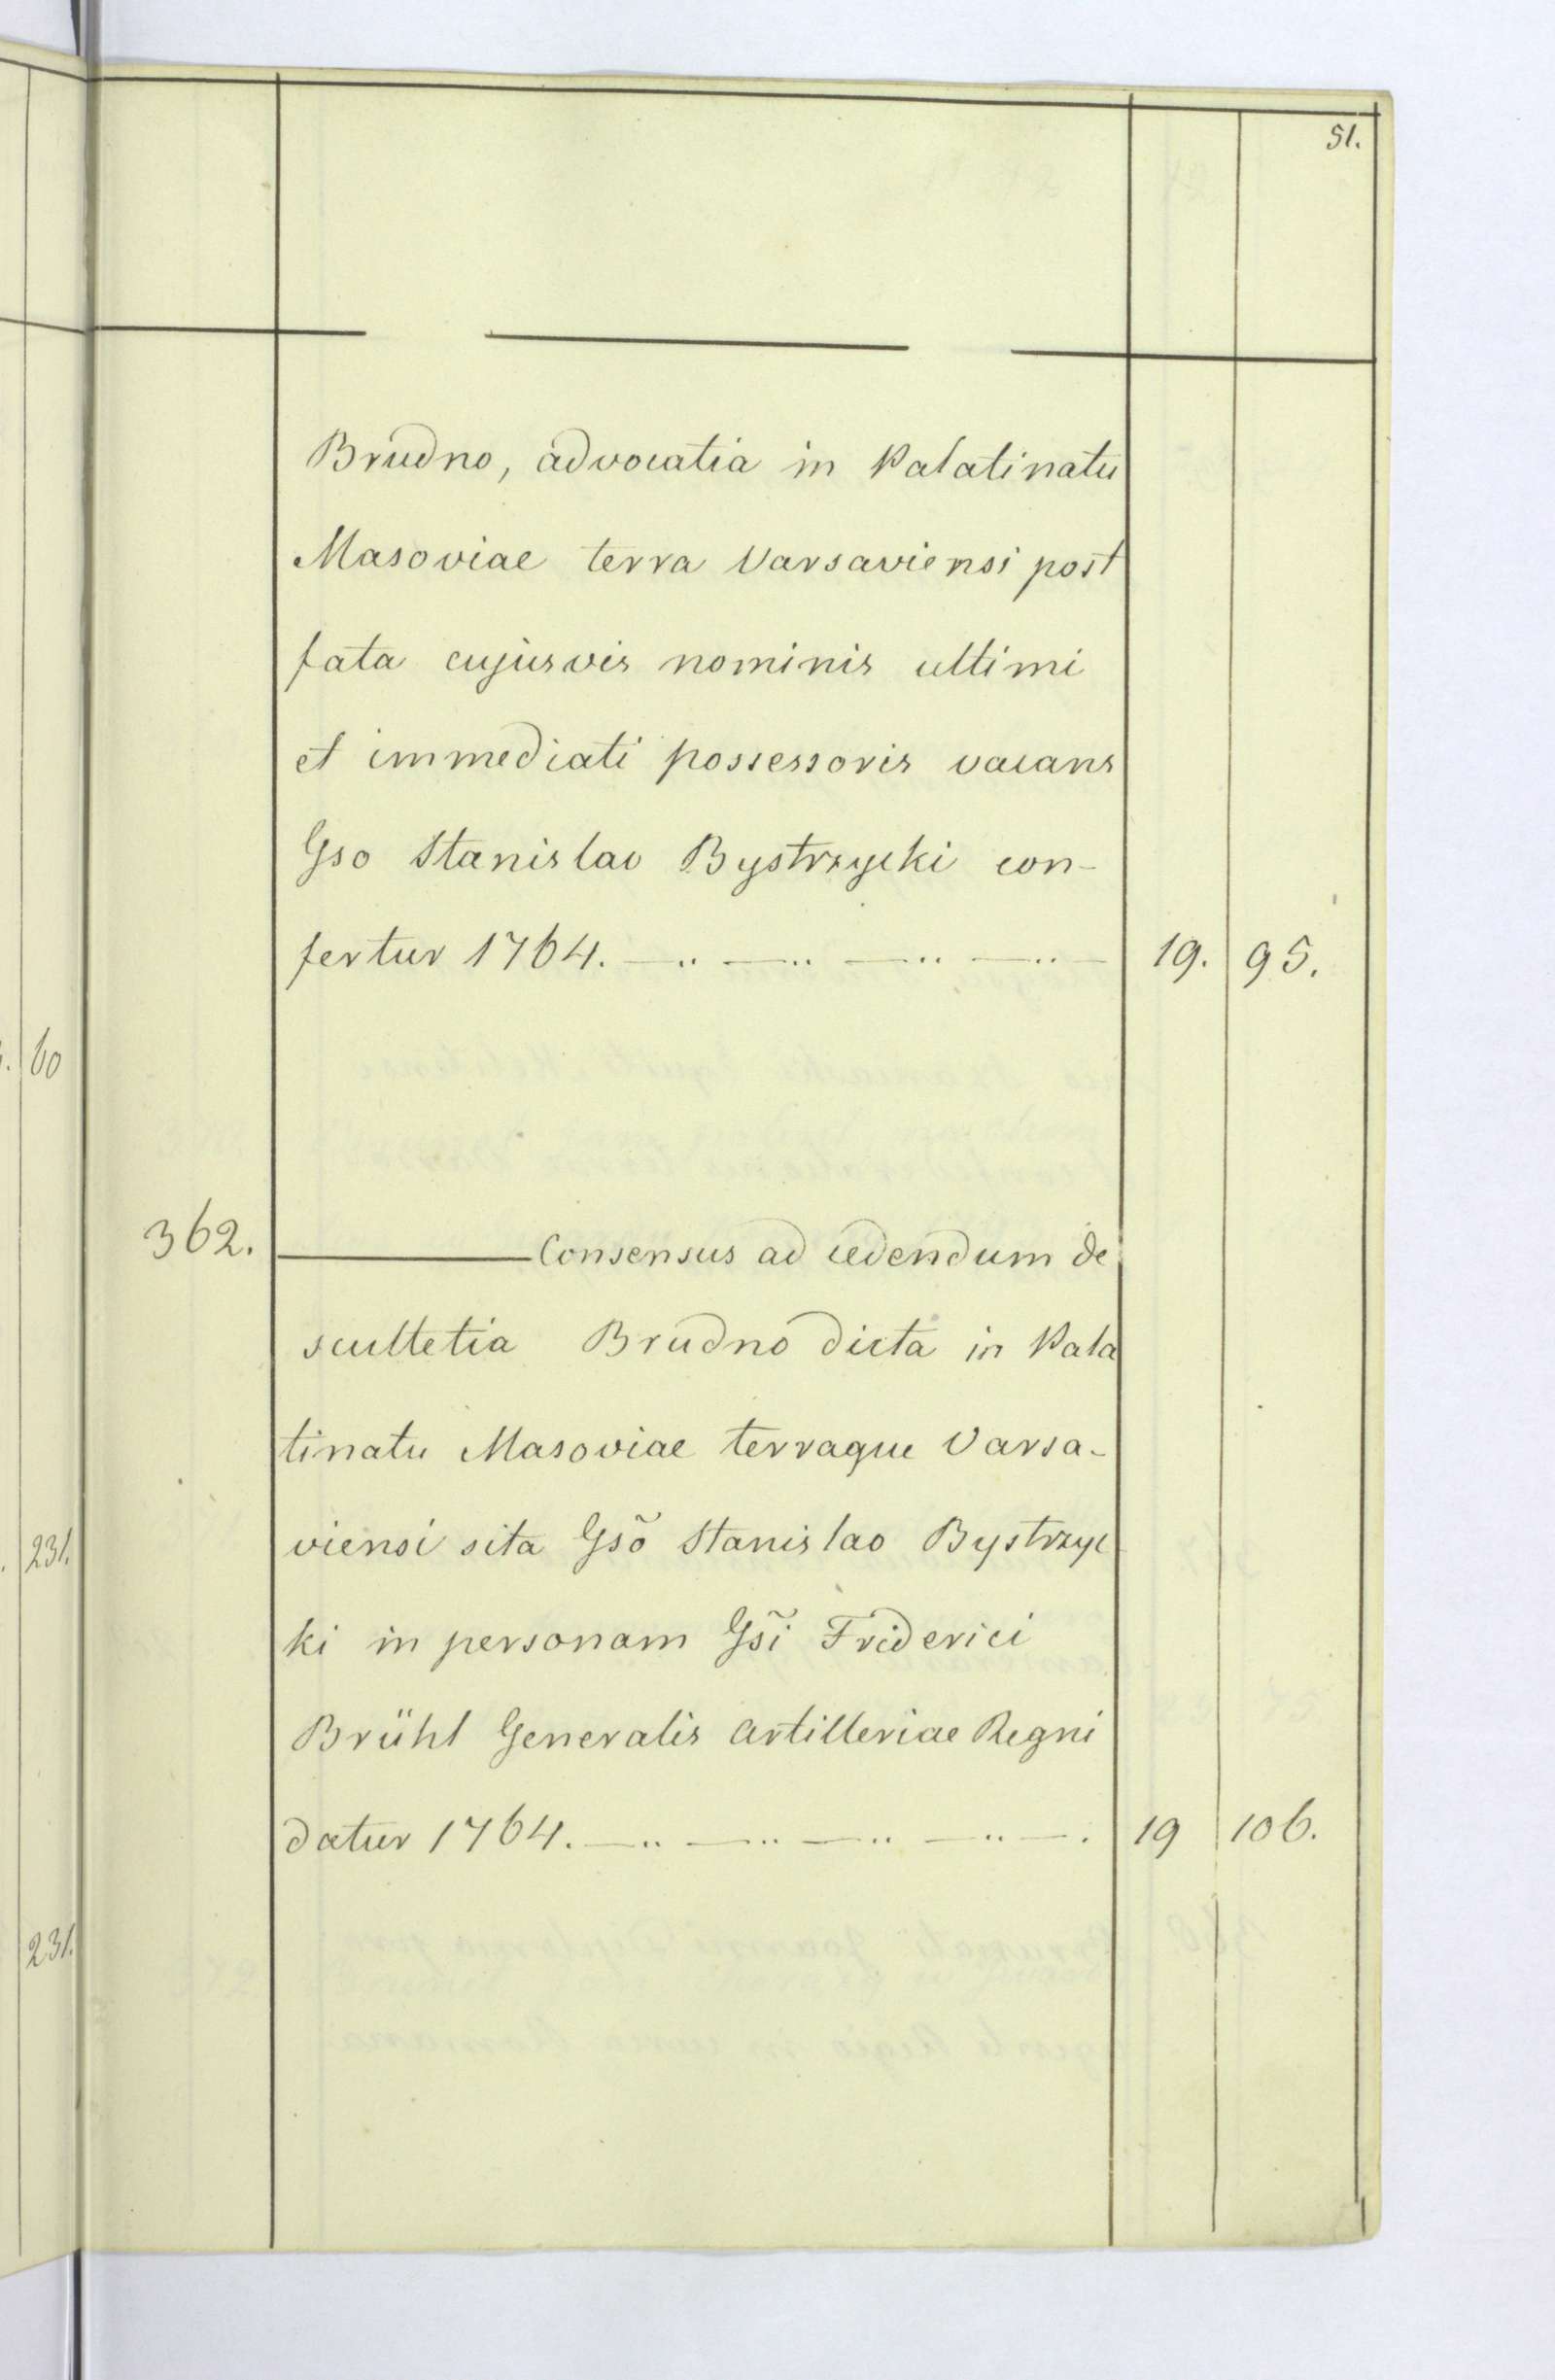 51.
Brudno, advocatia in Palatinatu
Masoviae terra Varsaviensi post
fata cujusvis nominis ultimi
et immediati possessoris vacans
Gso Stanislao Bystrzycki con-
fertur 1764. 19. 95.
60
362. Consensus ad cedendum de
scultetia Brudno dicta in Pala
tinatu Masoviae terraque Varsa-
viensi sita Gsõ Stanislao Bystrzyc
231.
ki in personam Gsĩ Friderici
Brühl Generalis Artilleriae Regni
datur 1764. 19 106.
231.